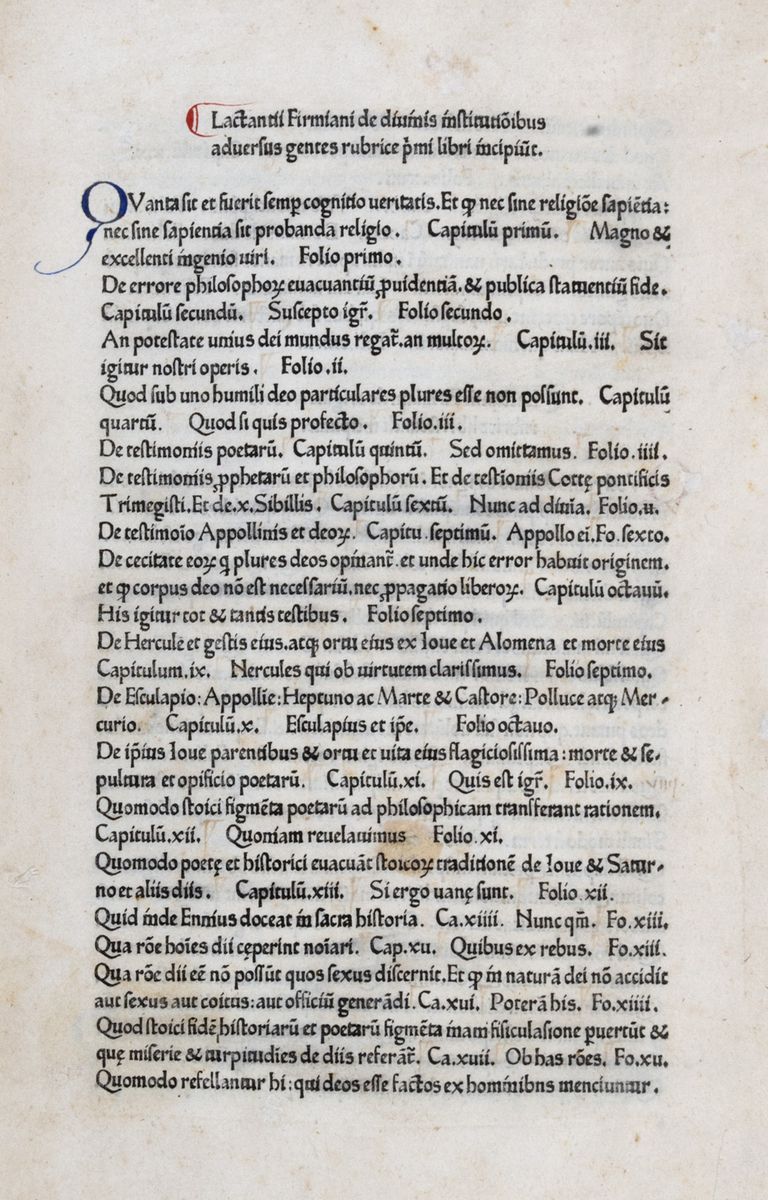 Lactantii Firmiani de diuinis institutiõibus
aduersus gentes rubrice p̃mi libri incipiũt.
QVanta sit et fuerit semꝑ cognitio ueritatis. Et ꝙ nec sine religiõe sapiẽtia:
nec sine sapientia sit probanda religio. Capitulũ primũ. Magno &
excellenti ingenio uiri. Folio primo.
De errore philosophoꝝ euacuantiũ ꝓuidentiã. & publica statuentiũ fide.
Capitulũ secundũ. Suscepto igr̃. Folio secundo.
An potestate unius dei mundus regat̃. an multoꝝ. Capitulũ. iii. Sit
igitur nostri operis. Folio. ii.
Quod sub uno humili deo particulares plures esse non possunt. Capitulũ
quartũ. Quod si quis profecto. Folio. iii.
De testimoniis poetarũ. Capitulũ quintũ. Sed omittamus. Folio. iiii.
De testimoniis ꝓphetarũ et philosophorũ. Et de testĩoniis Cottę pontificis
Trimegisti. Et de. x. Sibillis. Capitulũ sextũ. Nunc ad diuĩa. Folio. u.
De testimoĩo Appollinis et deoꝝ. Capitu. septimũ. Appollo ei. Fo. sexto.
De cecitate eoꝝ q̃ plures deos opinant̃. et unde hic error habuit originem.
et ꝙ corpus deo nõ est necessariũ. nec ꝓpagatio liberoꝝ. Capitulũ octauũ.
His igitur tot & tantis testibus. Folio septimo.
De Hercule et gestis eius. atqꝫ ortu eius ex Ioue et Alomena et morte eius
Capitulum. ix. Nercules qui ob uirtutem clarissimus. Folio septimo.
De Esculapio: Appollie: Heptuno ac Marte & Castore: Polluce atqꝫ Mer-
curio. Capitulũ. x. Esculapius et ip̃e. Folio octauo.
De ip̃ius Ioue parentibus & ortu et uita eius flagiciosissima: morte & se-
pultura et opificio poetarũ. Capitulũ. xi. Quis est igr̃. Folio. ix.
Quomodo stoici figmẽta poetarũ ad philosophicam transferant rationem.
Capitulũ. xii. Quoniam reuelauimus Folio. xi.
Quomodo poetę et historici euacuãt stoicoꝝ traditionẽ de Ioue & Satur-
no et aliis diis. Capitulũ. xiii. Si ergo uanę sunt. Folio. xii.
Quid inde Ennius doceat in sacra historia. Ca. xiiii. Nunc qm̃. Fo. xiii.
Qua rõe hoĩes dii cęperint noĩari. Cap. xu. Quibus ex rebus. Fo. xiii.
Qua rõe dii eẽ nõ possũt quos sexus discernit. Et ꝙ in naturã dei nõ accidit
aut sexus aut coitus: aut officiũ generãdi. Ca. xui. Poterã his. Fo. xiiii.
Quod stoici fidẽ historiarũ et poetarũ figmẽta inani fisiculasione ꝑuertũt &
quę miserie & turpitudĩes de diis referãt̃. Ca. xuii. Ob has rões. Fo. xu.
Quomodo refellantur hi: qui deos esse factos ex hominibns menciuntur.